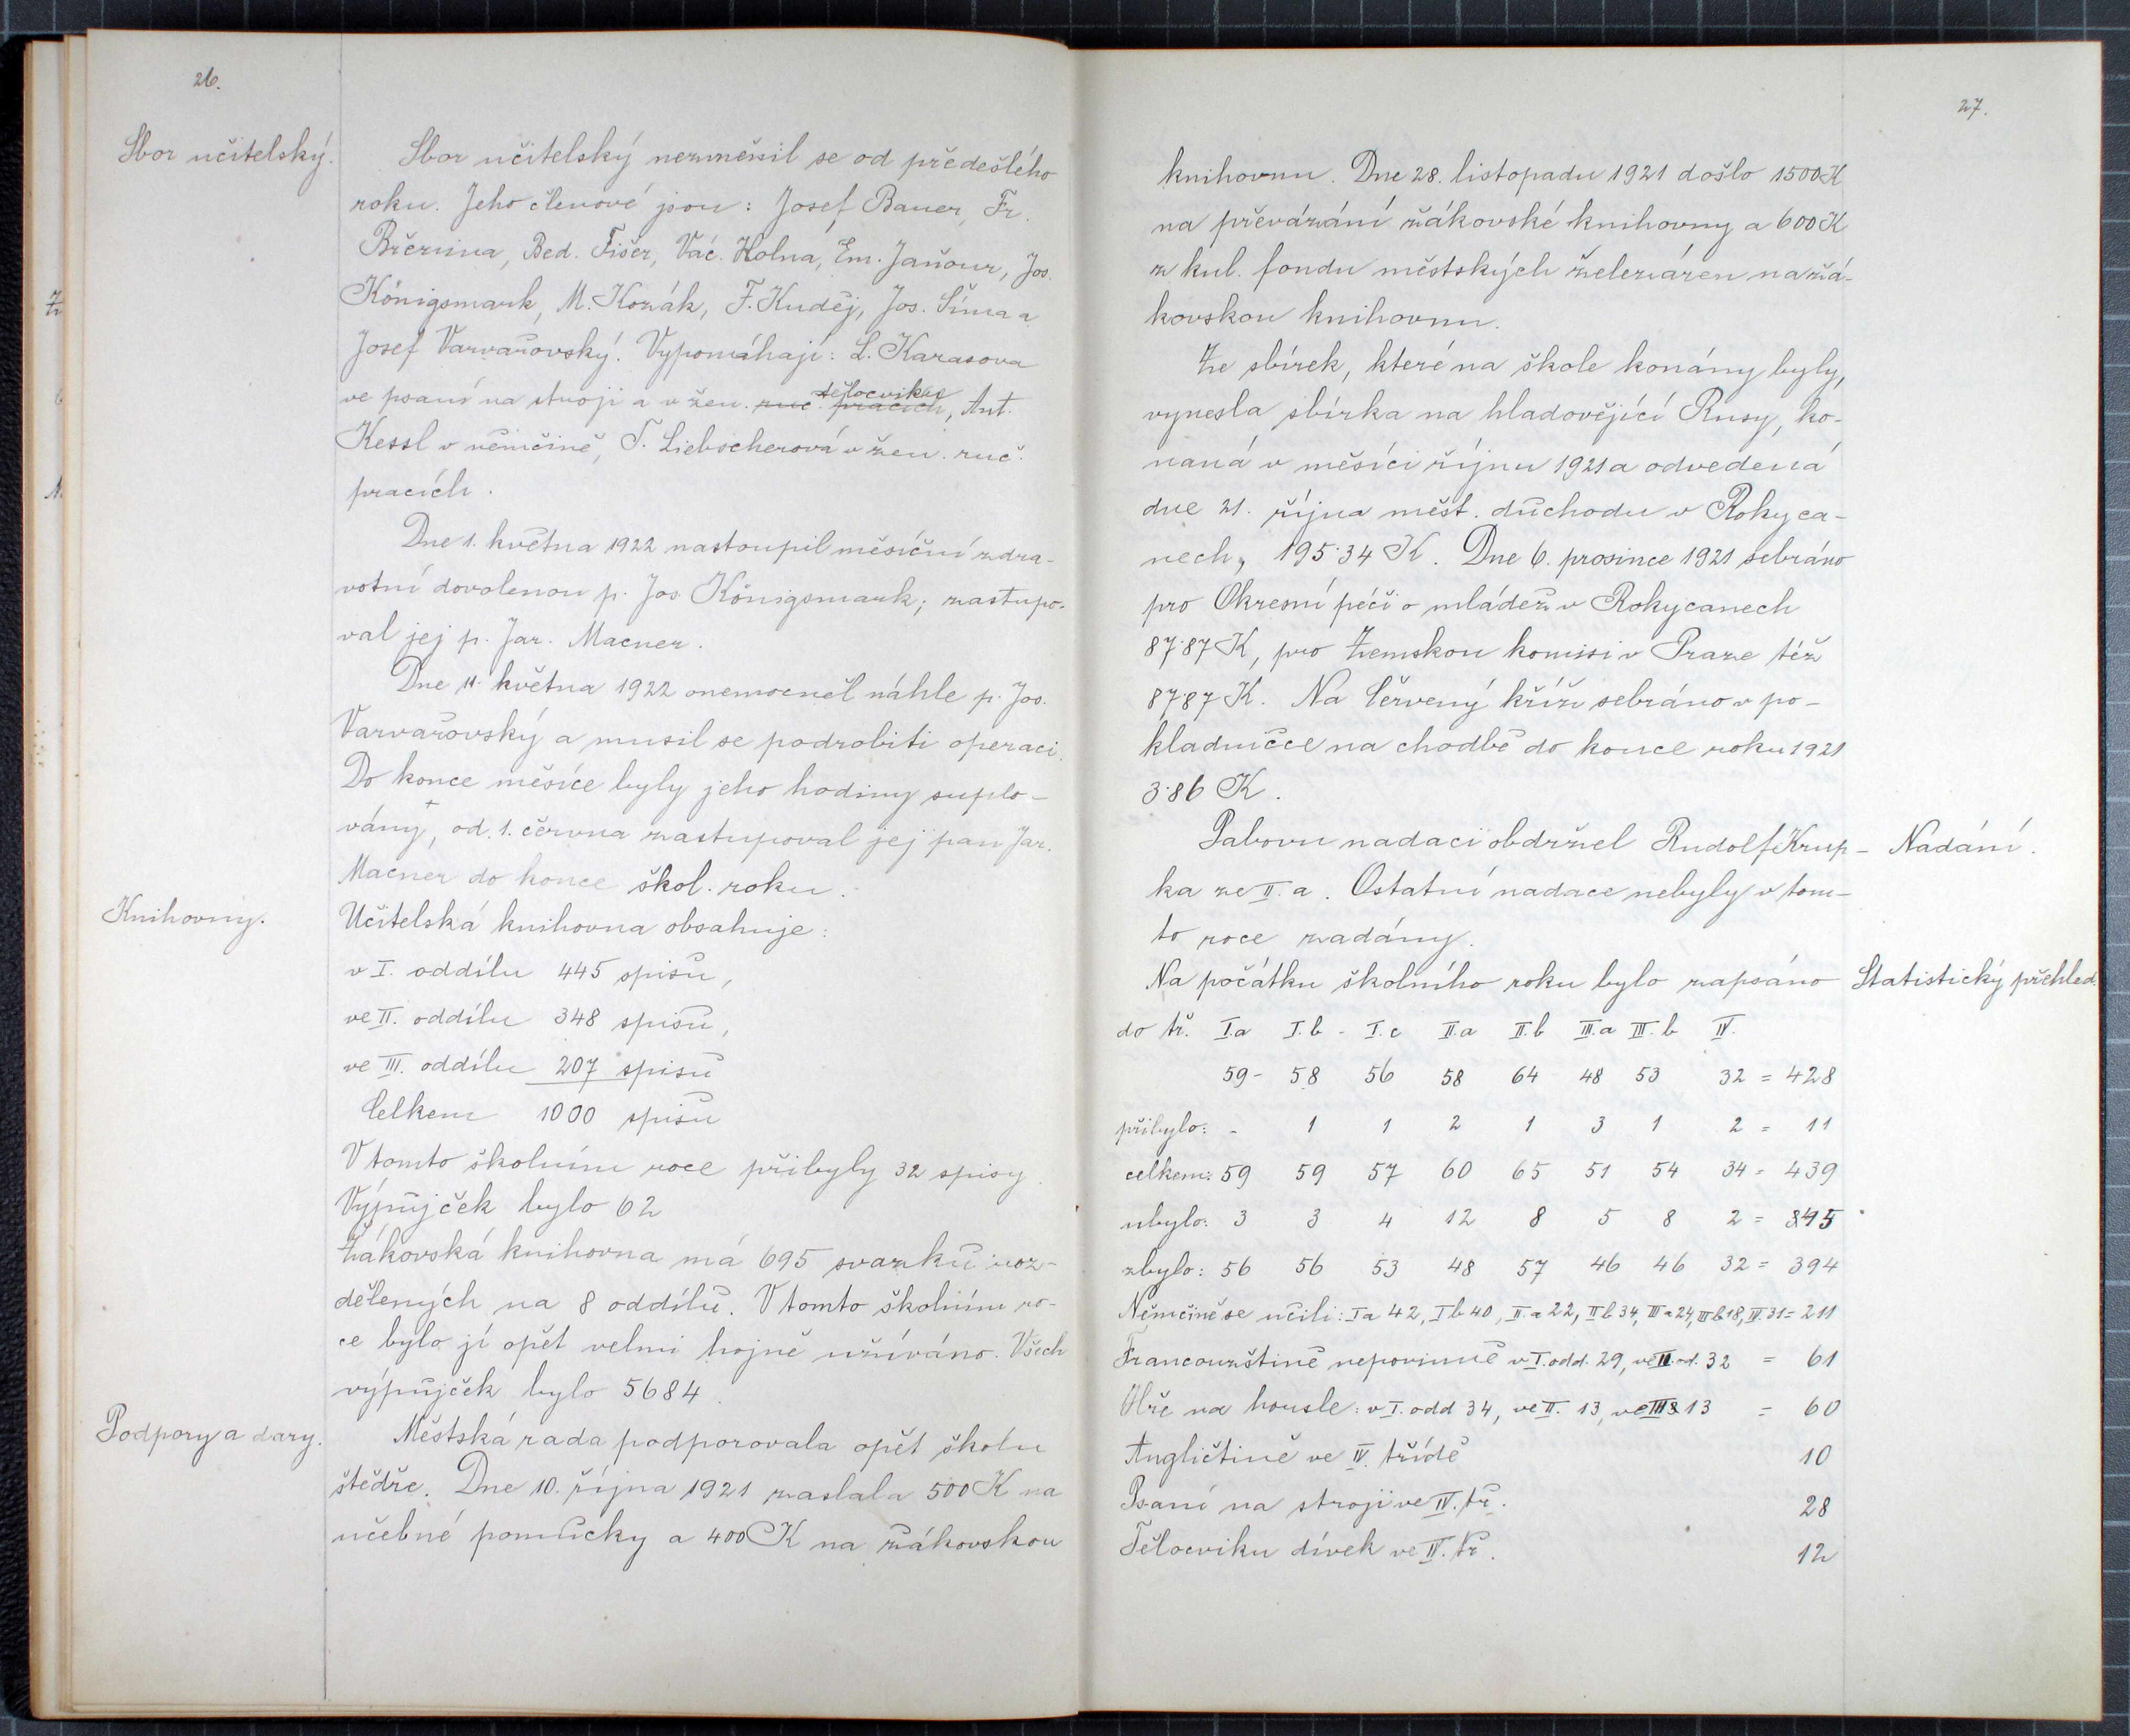 26.
Sbor učitelský.
Sbor učitelský nezměnil se od předešlého
roku. Jeho členové jsou: Josef Bauer, Fr.
Brčenina, Bed. Fišer, Vác. Holna, Em. Jaňour, Jos.
Königsmark, M. Kozák, F. Kuděj, Jos. Šíma a
Josef Varvařovský. Vypomáhají: L. Karasova
ve psaní na stroji a v žen. ruč. pracích tělocviku, Ant.
Kessl v němčině, T. Liebscherová v žen. ruč.
pracích.
Dne 1. května 1922 nastoupil měsíční zdra-
votní dovolenou p. Jos. Königsmark; zastupo-
val jej p. Jar. Macner.
Dne 11. května 1922 onemocněl náhle p. Jos.
Varvařovský a musil se podrobiti operaci.
Do konce měsíce byly jeho hodiny suplo-
vány, od 1. června zastupoval jej pan Jar.
Macner do konce škol. roku.
Knihovny.
Učitelská knihovna obsahuje:
v I. oddílu 445 spisů,
ve II. oddílu 348 spisů,
ve III. oddílu 207 spisů
Celkem 1000 spisů
V tomto školním roce přibyly 32 spisy.
Výpůjček bylo 62
Žákovská knihovna má 695 svazků roz-
dělených na 8 oddílů. V tomto školním ro-
ce bylo jí opět velmi hojně užíváno. Všech
výpůjček bylo 5684.
Podpory a dary.
Městská rada podporovala opět školu
štědře. Dne 10. října 1921 zaslala 500 K na
učebné pomůcky a 400 K na žákovskou
27.
knihovnu. Dne 28. listopadu 1921 došlo 1500 K
na převázání žákovské knihovny a 600 K
z kul. fondu městských železáren na žá-
kovskou knihovnu.
Ze sbírek, které na škole konány byly,
vynesla sbírka na hladovějící Rusy, ko-
naná v měsíci říjnu 1921 a odvedená
dne 21. října měst. důchodu v Rokyca-
nech, 195·34 K. Dne 6. prosince 1921 sebráno
pro Okresní péči o mládež v Rokycanech
87·87 K, pro Zemskou komisi v Praze též
87·87 K. Na Červený kříž sebráno v po-
kladničce na chodbě do konce roku 1921
3·86 K.
Nadání.
nadaci obdržel Rudolf Krup-
ka ze II. a. Ostatní nadace nebyly v tom-
to roce zadány.
Statistický přehled.
Na počátku školního roku bylo zapsáno
do tř. I.a I.b - I.c II.a II.b III.a III.b IV.
59 - 58 56 58 64 48 53 32 = 428
přibylo: - 1 1 2 1 3 1 2 = 11
celkem: 59 59 57 60 65 51 54 34 = 439
ubylo: 3 3 4 12 8 5 8 2 = 45
zbylo: 56 56 53 48 57 46 46 32 = 394
Němčině se učili: Ia 42, Ib 40, II.a 22, II b 34, III a 24, III b 18, IV. 31 = 211
Francouzštině nepovinné v I. odd. 29, ve II. od. 32 = 61
Hře na housle: v I. odd 34, ve II. 13, ve III 13 = 60
Angličtině ve IV. třídě 10
Psaní na stroji ve IV. tř. 28
Tělocviku dívek ve IV. tř. 12